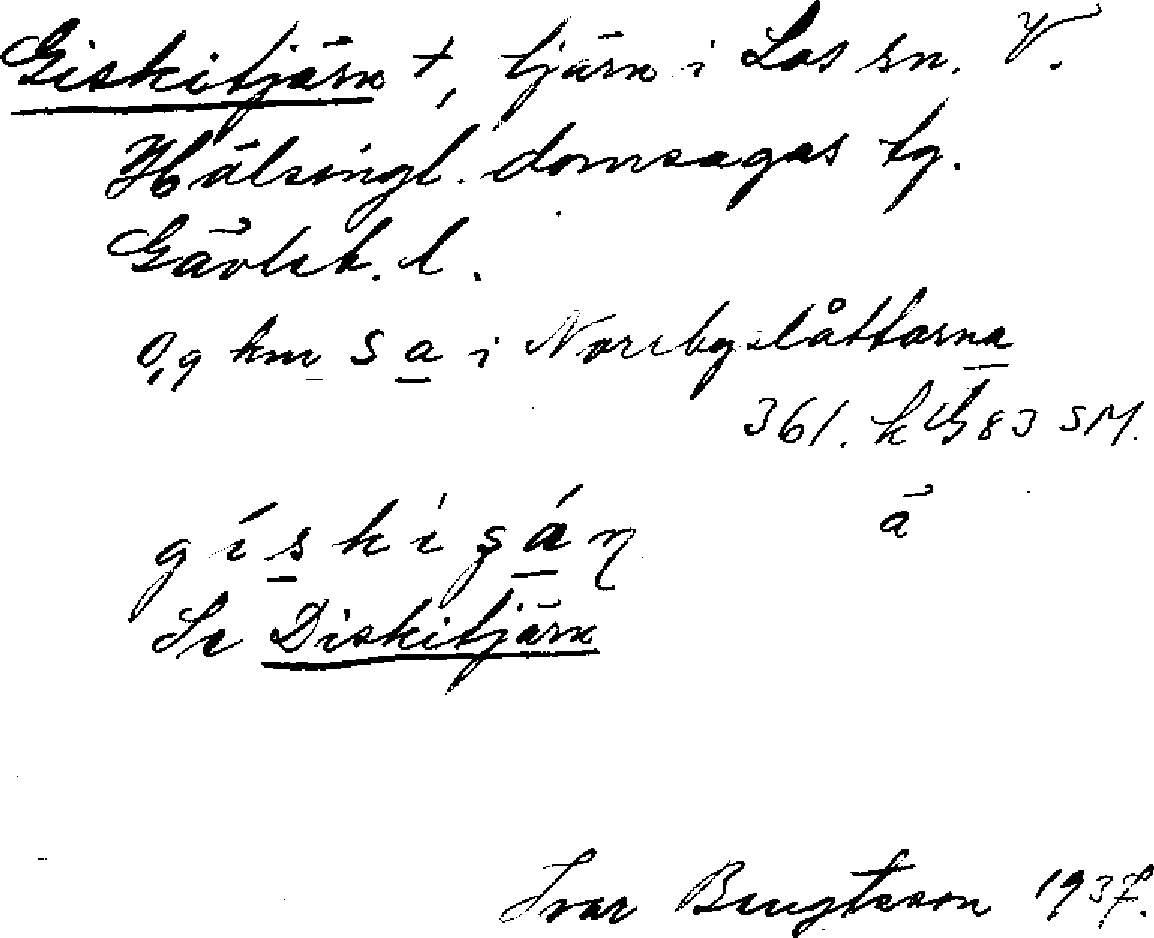 Giskitjärn +, tjärn i Los sn. V.
Hälsingl. domsagas tg.
Gävleb. l.
0,9 km S a i Norrbyslåttarna
361. k 83 SM.
ä
g í s k i ş á ŋ
Se Diskitjärn
Ivar Bengtsson 1937.